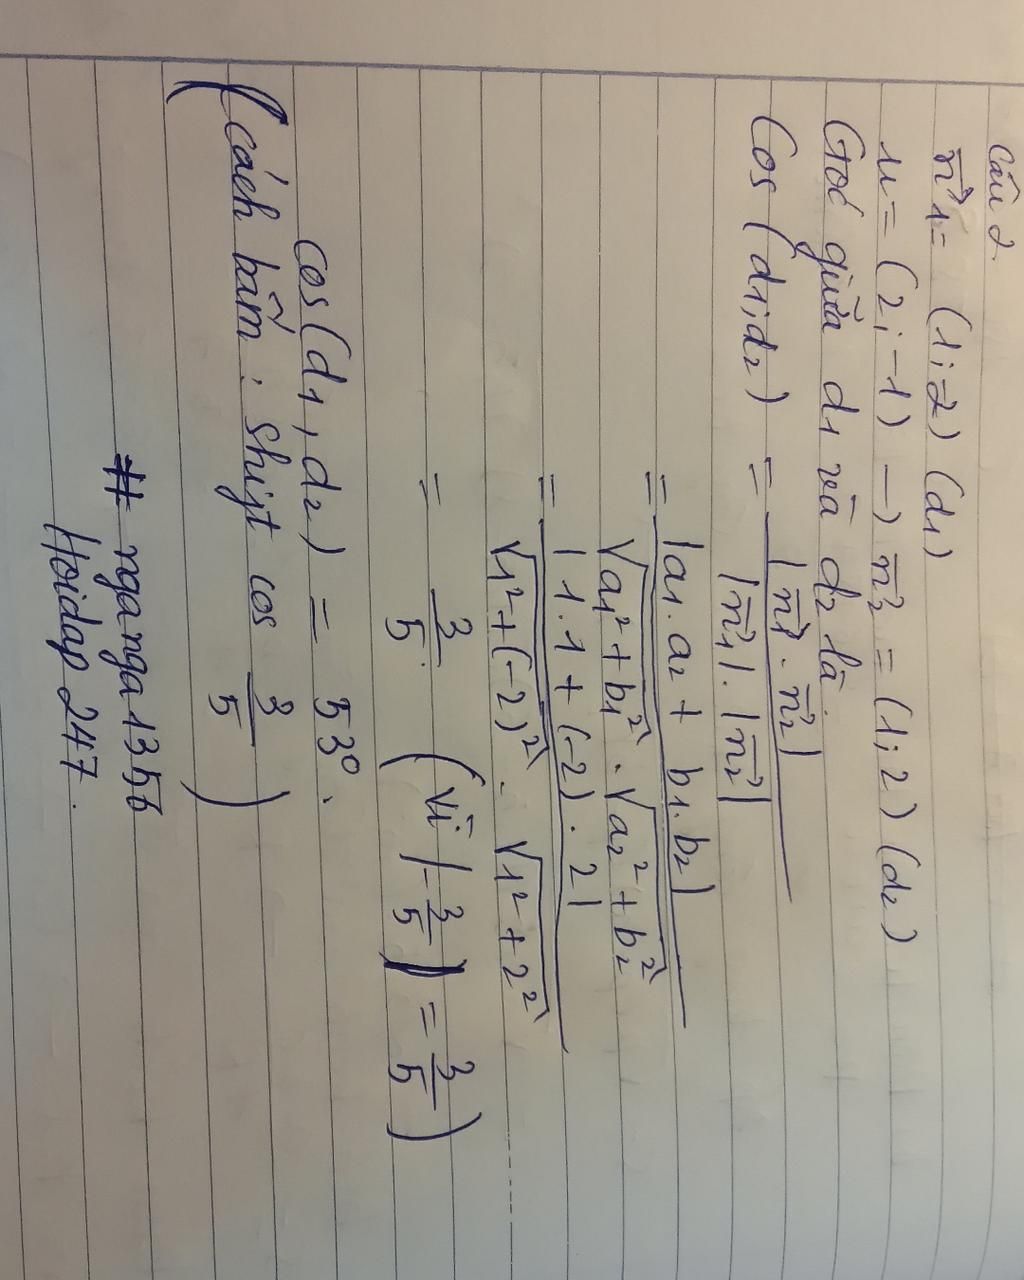 Câu 2.
n⃗1 = (1;-2) (d1)
u = (2;-1) → n⃗2 = (1;2) (d2)
Góc giữa d1 và d2 là:
Cos (d1;d2) = |n⃗1 . n⃗2| / |n⃗1| . |n⃗2|
= |a1.a2 + b1.b2| / √(a1² + b1²) . √(a2² + b2²)
= |1.1 + (-2).2| / √(1² + (-2)²) . √(1² + 2²)
= 3/5 (Vì |-3/5| = 3/5)
Cos(d1, d2) = 53°.
(Cách bấm : shift cos 3/5)
# nganga1356
Hoidap 247.